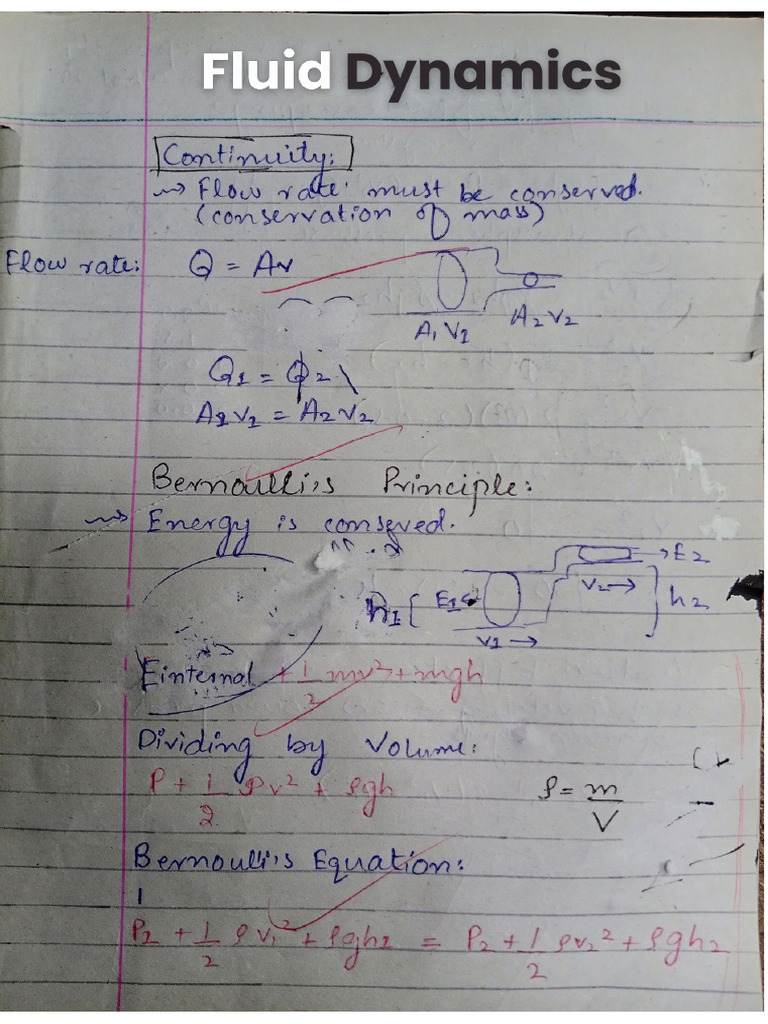 Fluid Dynamics
Continuity:
⇝ Flow rate must be conserved.
(conservation of mass)
Flow rate: Q = Av
A₁ V₁ A₂ V₂
Q₁ = Q₂
A₁ V₁ = A₂ V₂
Bernoulli's Principle:
⇝ Energy is conseved.
→ E₂
h₁ E₁ V₂ → h₂
V₁ →
Einternal + 1/2 mv² + mgh
Dividing by Volume:
P + 1/2 ρv² + ρgh ρ = m/V
Bernoulli's Equation:
P₁ + 1/2 ρv₁² + ρgh₁ = P₂ + 1/2 ρv₂² + ρgh₂